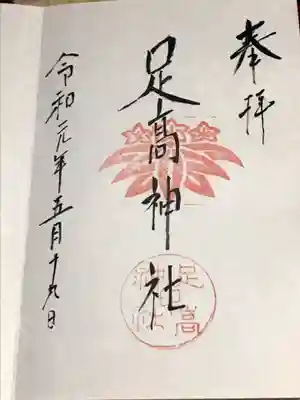 奉拝
足髙神社
令和元年五月十九日
足高神社